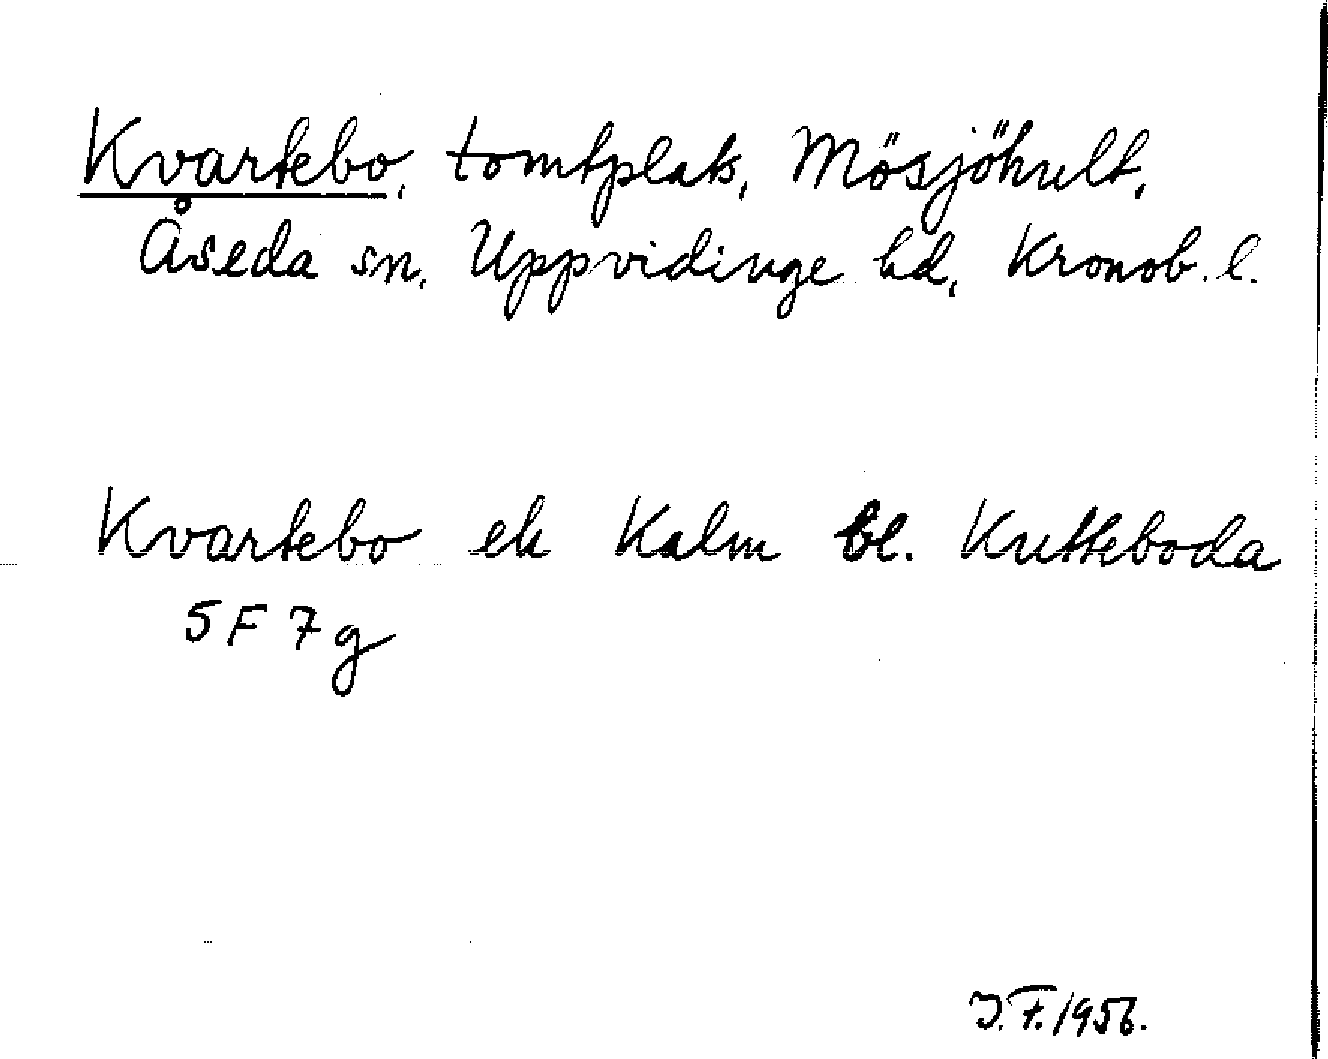 Kvartebo, tomtplats, Mösjöhult,
Åseda sn, Uppvidinge hd, Kronob. l.
Kvartebo ek Kalm bl. Kutteboda
5 F 7 g
J.F. 1956.